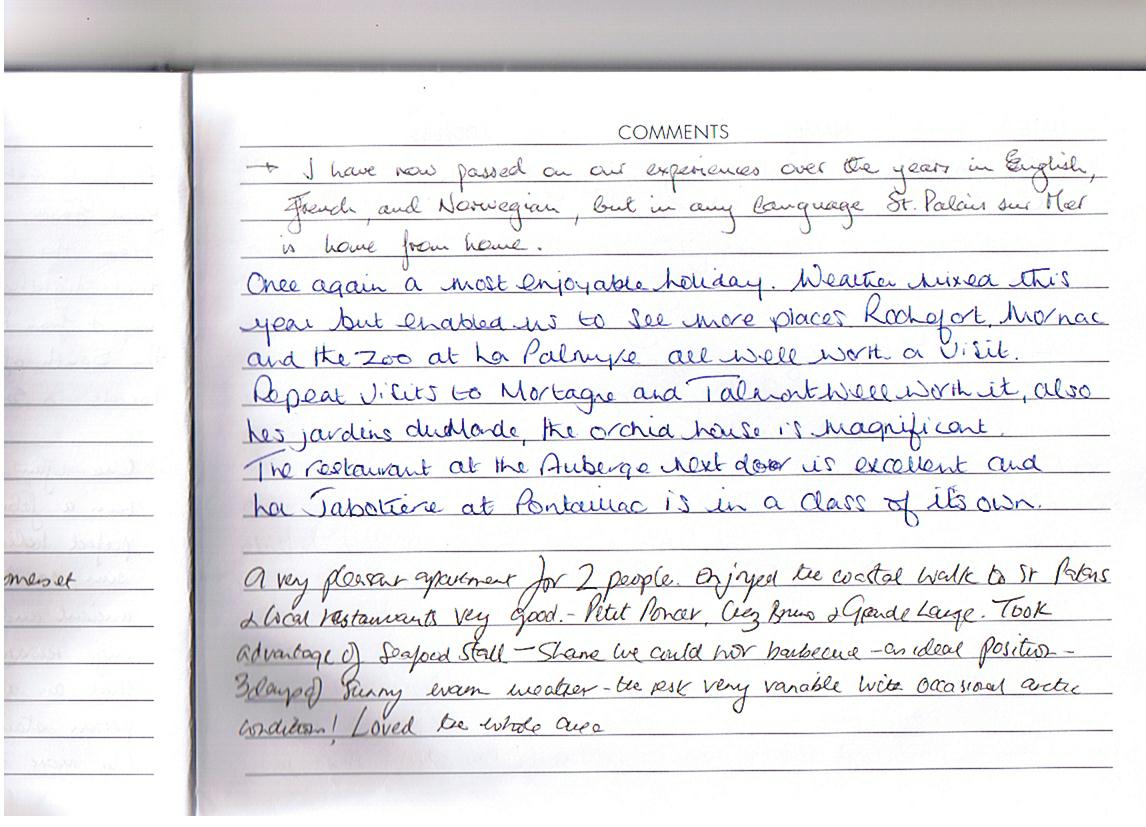 COMMENTS
→ I have now passed on our experiences over the years in English,
French, and Norwegian, but in any language St. Palais sur Mer
is home from home.
Once again a most enjoyable holiday. Weather mixed this
year but enabled us to see more places Rochefort, Mornac
and the zoo at La Palmyre all well worth a visit.
Repeat visits to Mortagne and Talmont well worth it, also
Les jardins du Monde, the orchid house is magnificent.
The restaurant at the Auberge next door is excellent and
La Jabotière at Pontaillac is in a class of its own.
omerset
A very pleasant apartment for 2 people. Enjoyed the coastal walk to St Palais
& local restaurants very good - Petit Poncer, Chez Bruno & Grande Large. Took
advantage of Seafood Stall - Shame we could not barbecue - an ideal position -
3 days of sunny warm weather - the rest very variable with occasional arctic
condition! Loved the whole area